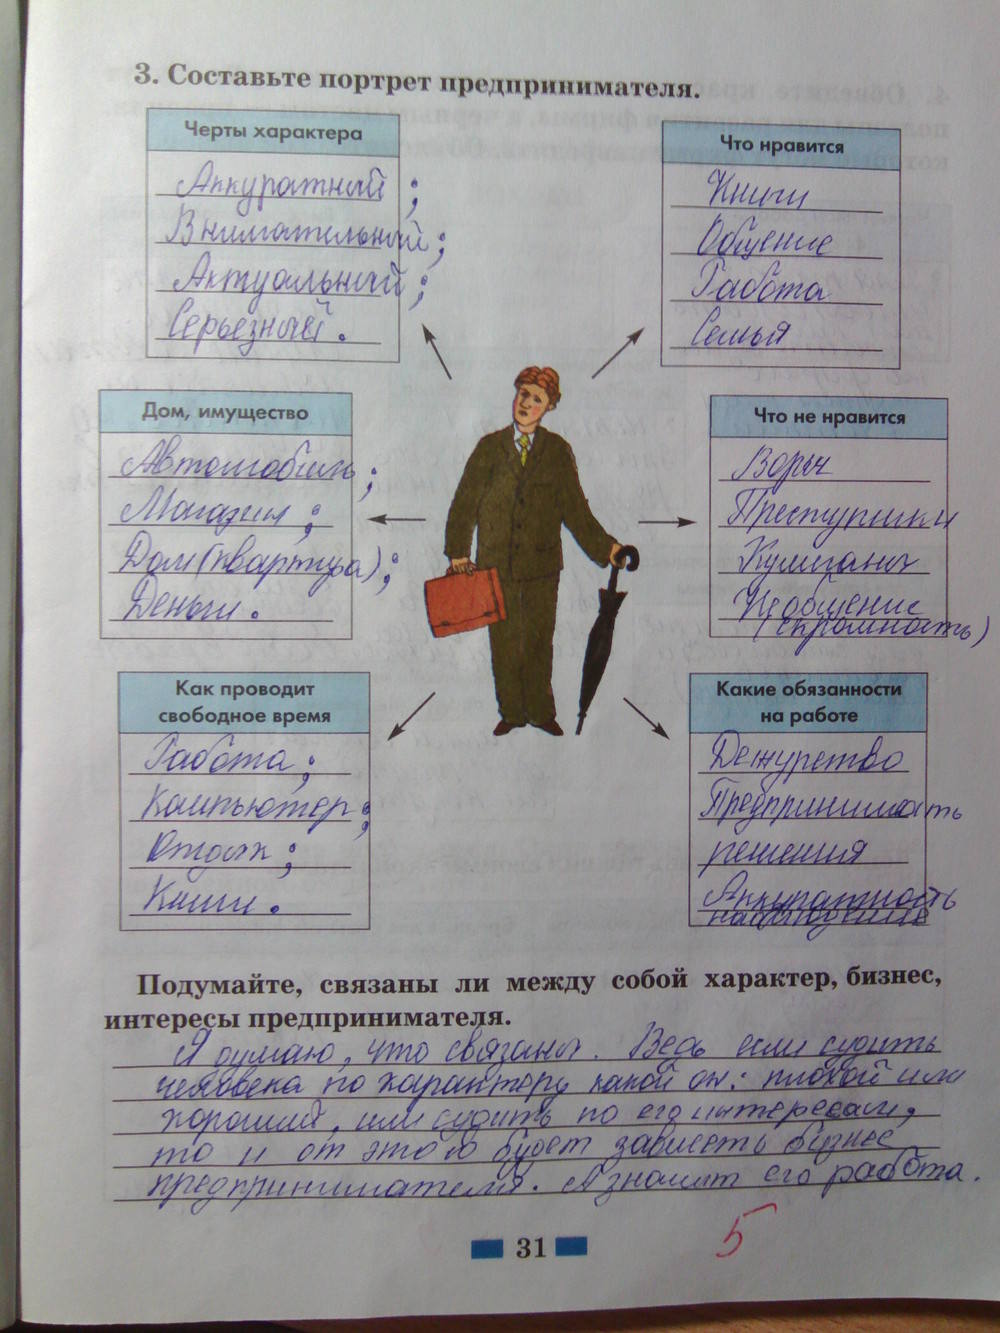 3. Составьте портрет предпринимателя.
Черты характера
Аккуратный;
Внимательный;
Актуальный;
Серьезный.
Что нравится
Книги
Общение
Работа
Семья
Дом, имущество
Автомобиль;
Магазин;
Дом(квартира);
Деньги.
Что не нравится
Воры
Преступники
Хулиганы
Необщение
(скромность)
Как проводит
свободное время
Работа;
Компьютер;
Отдых;
Книги.
Какие обязанности
на работе
Дежурство
Предпринимать
решения
Аккуратность
наблюдение
Подумайте, связаны ли между собой характер, бизнес,
интересы предпринимателя.
Я думаю, что связаны. Ведь если судить
человека по характеру какой он: плохой или
хороший, или судить по его интересам,
то и от этого будет зависеть бизнес
предпринимателя. А значит его работа.
5
31